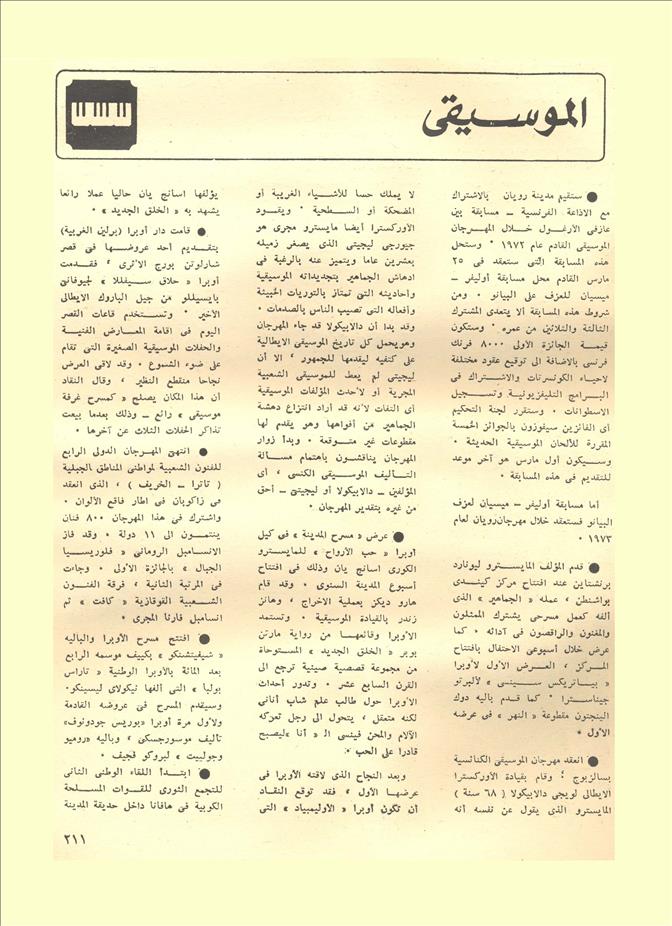 الموسيقى
● ستقيم مدينة رويان بالاشتراك
مع الاذاعة الفرنسية – مسابقة بين
عازفى الأرغول خلال المهرجان
الموسيقى القادم عام ١٩٧٢ • وستحل
هذه المسابقة التى ستعقد فى ٢٥
مارس القادم محل مسابقة أوليفر –
ميسيان للعزف على البيانو • ومن
شروط هذه المسابقة ألا يتعدى المشترك
الثالثة والثلاثين من عمره • وستكون
قيمة الجائزة الأولى ٨٠٠٠ فرنك
فرنسى بالاضافة الى توقيع عقود مختلفة
لاحياء الكونسرتات والاشتراك فى
البرامج التليفزيونية وتسجيل
الاسطوانات • وستقرر لجنة التحكيم
أى الفائزين سيفوزون بالجوائز الخمسة
المقررة للألحان الموسيقية الحديثة •
وسيكون أول مارس هو آخر موعد
للتقديم فى هذه المسابقة •
أما مسابقة أوليفر – ميسيان لعزف
البيانو فستعقد خلال مهرجان رويان لعام
١٩٧٣ •
● قدم المؤلف المايسترو ليونارد
برنشتاين عند افتتاح مركز كينيدى
بواشنطن ، عمله « الجماهير » الذى
ألفه كعمل مسرحى يشترك الممثلون
والمغنون والراقصون فى آدائه • كما
عرض خلال أسبوعى الاحتفال بافتتاح
المركز ، العرض الأول لأوبرا
« بياتريكس سينسى » لألبرتو
جيناسترا • كما قدم باليه دوك
الينجتون مقطوعة « النهر » فى عرضه
الأول •
● انعقد مهرجان الموسيقى الكنائسية
بسالزبوج ؛ وقام بقيادة الأوركسترا
الايطالى لويجى دالابيكولا ( ٦٨ سنة )
المايسترو الذى يقول عن نفسه أنه
لا يملك حسا للأشياء الغريبة أو
المضحكة أو السطحية • ويقود
الأوركسترا أيضا مايسترو مجرى هو
جيورجى ليجيتى الذى يصغر زميله
بعشرين عاما ويتميز عنه بالرغبة فى
ادهاش الجماهير بتجديداته الموسيقية
وأحاديثه التى تمتاز بالتوريات الخبيثة
وأفعاله التى تصيب الناس بالصدمات •
وقد بدا أن دالابيكولا قد جاء المهرجان
وهو يحمل كل تاريخ الموسيقى الايطالى
على كتفيه ليقدمها للجمهور ، الا أن
ليجيتى لم يعط للموسيقى الشعبية
المجرية أو لأحدث المؤلفات الموسيقية
أى التفات لأنه قد أراد انتزاع دهشة
الجماهير من أفواهها وهو يقدم لها
مقطوعات غير متوقعة • وبدأ زوار
المهرجان يناقشون باهتمام مسألة
التأليف الموسيقى الكنسى ، أى
المؤلفين – دالابيكولا أو ليجيتى – أحق
من غيره بتقدير المهرجان •
● عرض « مسرح المدينة » فى كيل
أوبرا « حب الأرواح » للمايسترو
الكورى اسانج يان وذلك فى افتتاح
أسبوع المدينة السنوى • وقد قام
هارو ديكن بعملية الاخراج ، وهانز
زندر بالقيادة الموسيقية • وتستمد
الأوبرا وقائعها من رواية مارتن
بوبر « الخلق الجديد » المستوحاة
من مجموعة قصصية صينية ترجع الى
القرن السابع عشر • وتدور أحداث
الأوبرا حول طالب علم شاب أنانى
لكنه متعقل ، يتحول الى رجل تعركه
الآلام والمحن فينسى الـ « أنا » ليصبح
قادرا على الحب •
وبعد النجاح الذى لاقته الأوبرا فى
عرضها الأول ، فقد توقع النقاد
أن تكون أوبرا « الأوليمبياد » التى
يؤلفها اسانج يان حاليا عملا رائعا
يشهد به « الخلق الجديد » •
● قامت دار أوبرا (برلين الغربية)
بتقديم أحد عروضها فى قصر
شارلوتن بورج الأثرى ، فقدمت
أوبرا « حلاق سيفيللا » لجيوفانى
بايسيللو من جيل الباروك الايطالى
الأخير • وتستخدم قاعات القصر
اليوم فى اقامة المعارض الفنية
والحفلات الموسيقية الصغيرة التى تقام
على ضوء الشموع • وقد لاقى العرض
نجاحا منقطع النظير ، وقال النقاد
أن هذا المكان يصلح « كمسرح غرفة
موسيقى » رائع – وذلك بعدما بيعت
تذاكر الحفلات الثلاث عن آخرها •
● انتهى المهرجان الدولى الرابع
للفنون الشعبية لمواطنى المناطق الجبلية
( تاترا – الخريف ) ، الذى انعقد
فى زاكوبان فى اطار فاقع الألوان •
واشترك فى هذا المهرجان ٨٠٠ فنان
ينتمون الى ١١ دولة • وقد فاز
الانسامبل الرومانى « فلوريسيا
الجبال » بالجائزة الأولى • وجاءت
فى المرتبة الثانية ، فرقة الفنون
الشعبية القوقازية « كافت » ثم
انسامبل فارتا المجرى •
● افتتح مسرح الأوبرا والباليه
« شيفيتشنكو » بكييف موسمه الرابع
بعد المائة بالأوبرا الوطنية « تاراس
بولبا » التى ألفها نيكولاى ليسينكو•
وسيقدم المسرح فى عروضه القادمة
ولأول مرة أوبرا «بوريس جودونوف»
تأليف موسورجسكى ، وباليه «روميو
وجولييت » لبروكوفجيف •
● ابتدأ اللقاء الوطنى الثانى
للتجمع الثورى للقوات المسلحة
الكوبية فى هافانا داخل حديقة المدينة
٢١١